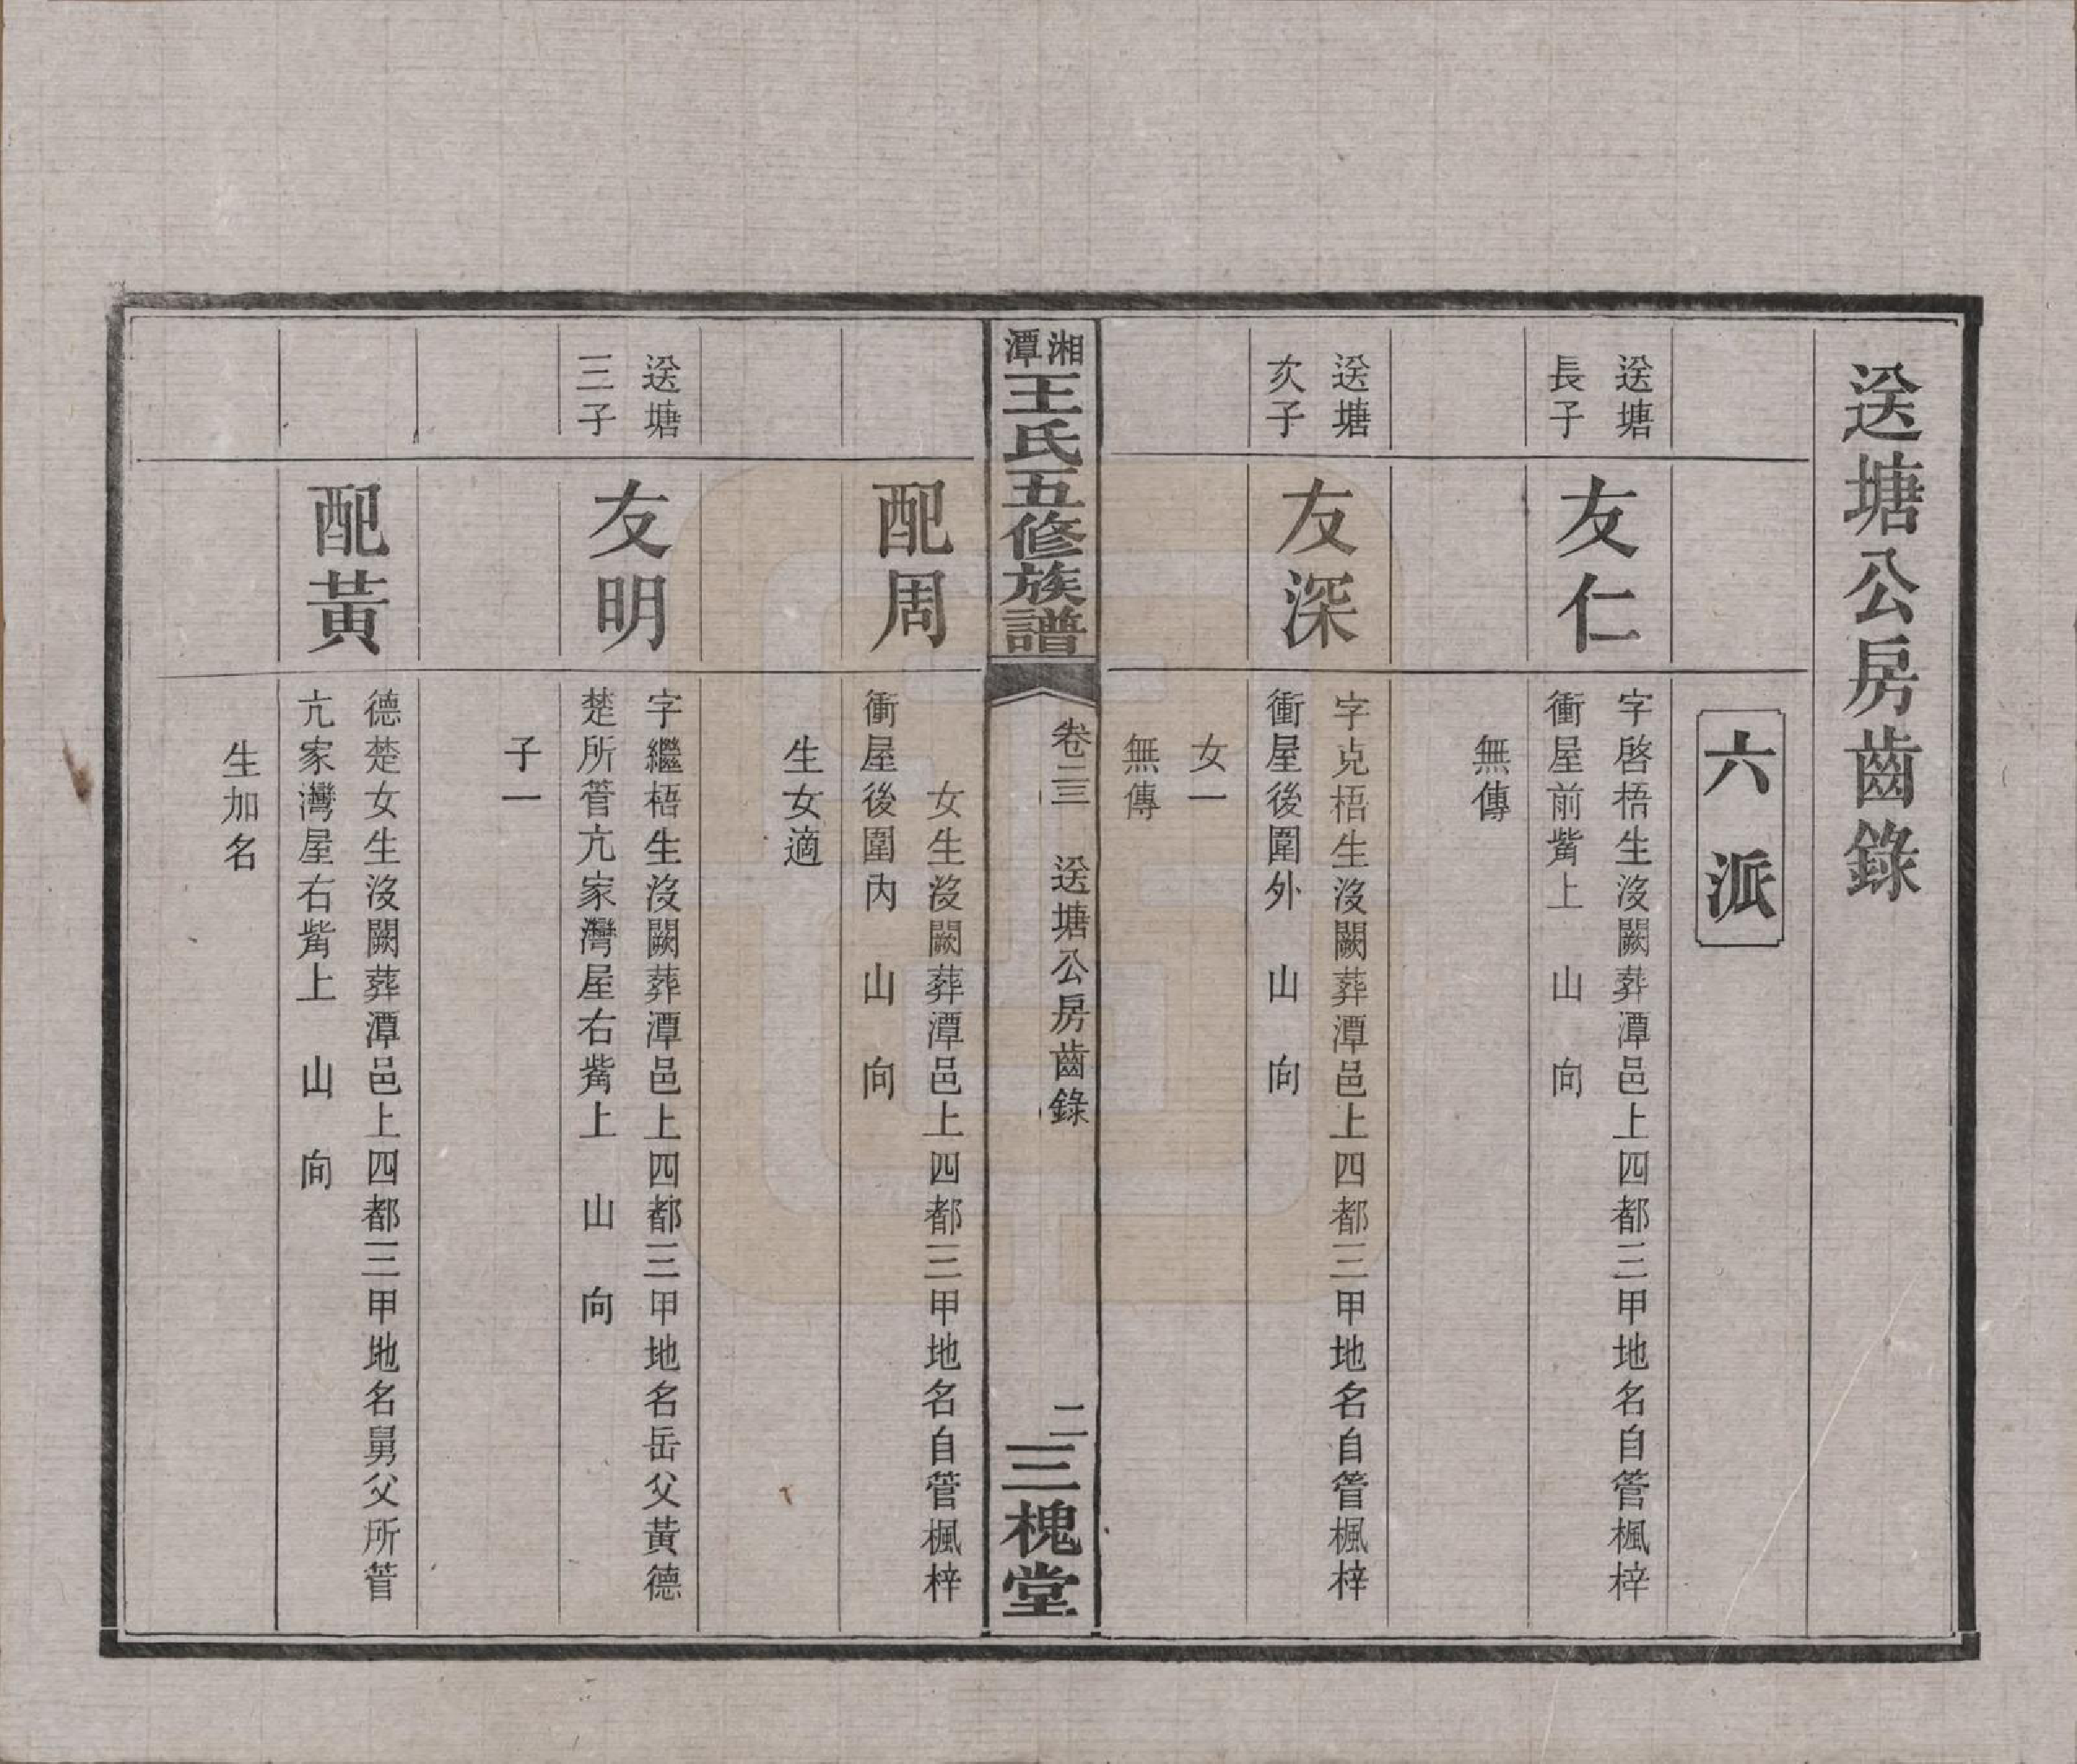 送塘公房齒錄
六派
送塘
長子
友仁
字啓梧生沒闕葬潭邑上四都三甲地名自管楓梓
衝屋前觜上　山　向
無傳
送塘
次子
友深
字克梧生沒闕葬潭邑上四都三甲地名自管楓梓
衝屋後圍外　山　向
女一
無傳
湘潭王氏五修族譜
卷二三　送塘公房齒錄
二
三槐堂
配周
女生沒闕葬潭邑上四都三甲地名自管楓梓
衝屋後圍內　山　向
生女適
送塘
三子
友明
字繼梧生沒闕葬潭邑上四都三甲地名岳父黃德
楚所管亢家灣屋右觜上　山　向
子一
配黃
德楚女生沒闕葬潭邑上四都三甲地名舅父所管
亢家灣屋右觜上　山　向
生加名